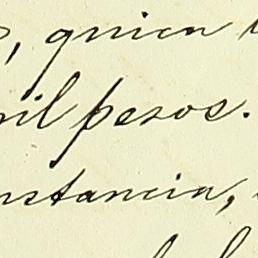 , quien
mil pesos.
nstancia,